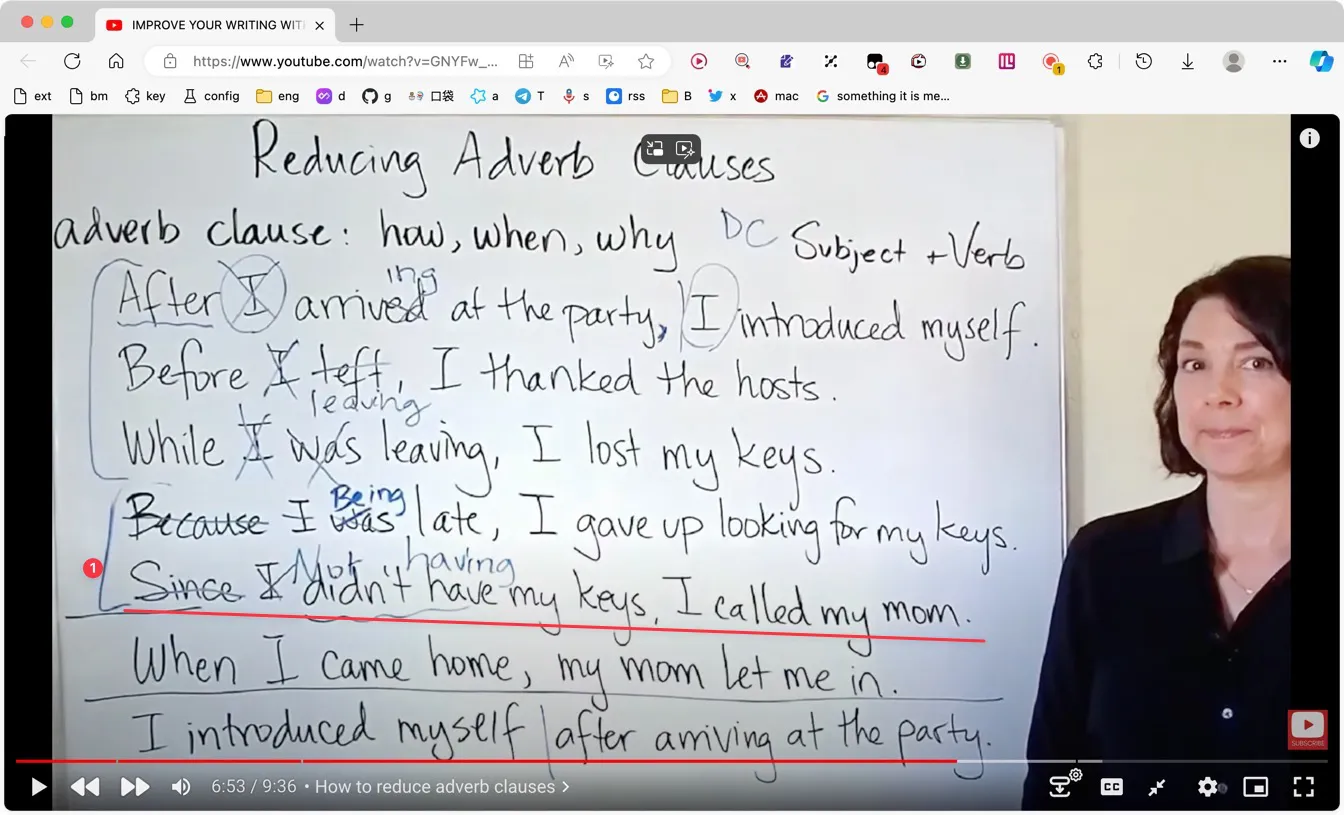 IMPROVE YOUR WRITING WIT
https://www.youtube.com/watch?v=GNYFw_...
4
1
ext bm key config eng d g 口袋 a T s rss B x mac something it is me...
Reducing Adverb Clauses
adverb clause: how, when, why DC Subject + Verb
ing
After I arrived at the party, I introduced myself.
Before I left, I thanked the hosts.
leaving
While I was leaving, I lost my keys.
Being
Because I was late, I gave up looking for my keys.
Not having
1 Since I didn't have my keys, I called my mom.
When I came home, my mom let me in.
I introduced myself after arriving at the party.
SUBSCRIBE
6:53 / 9:36 • How to reduce adverb clauses >
CC